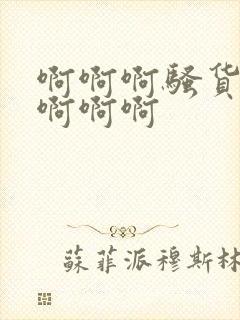 啊啊啊騷貨
啊啊啊
蘇菲派穆斯林